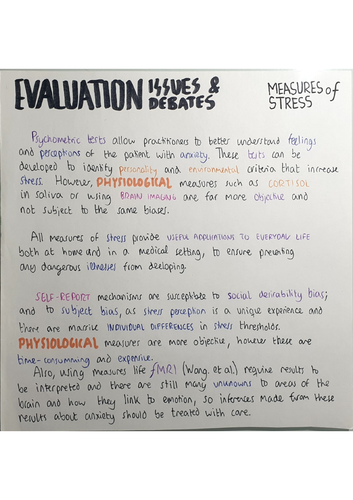 EVALUATION ISSUES & DEBATES
MEASURES of STRESS
Psychometric tests allow practitioners to better understand feelings
and perceptions of the patient with anxiety. These tests can be
developed to identify personality and environmental criteria that increase
stress. However, PHYSIOLOGICAL measures such as CORTISOL
in saliva or using BRAIN IMAGING are far more objective and
not subject to the same biases.
All measures of stress provide USEFUL APPLICATIONS TO EVERYDAY LIFE
both at home and in a medical setting, to ensure preventing
any dangerous illnesses from developing.
SELF-REPORT mechanisms are susceptible to social desirability bias;
and to subject bias, as stress perception is a unique experience and
there are massive INDIVIDUAL DIFFERENCES in stress thresholds.
PHYSIOLOGICAL measures are more objective, however these are
time-consumming and expensive.
Also, using measures like fMRI (Wang. et al.) require results to
be interpreted and there are still many unknowns to areas of the
brain and how they link to emotion, so inferences made from these
results about anxiety should be treated with care.